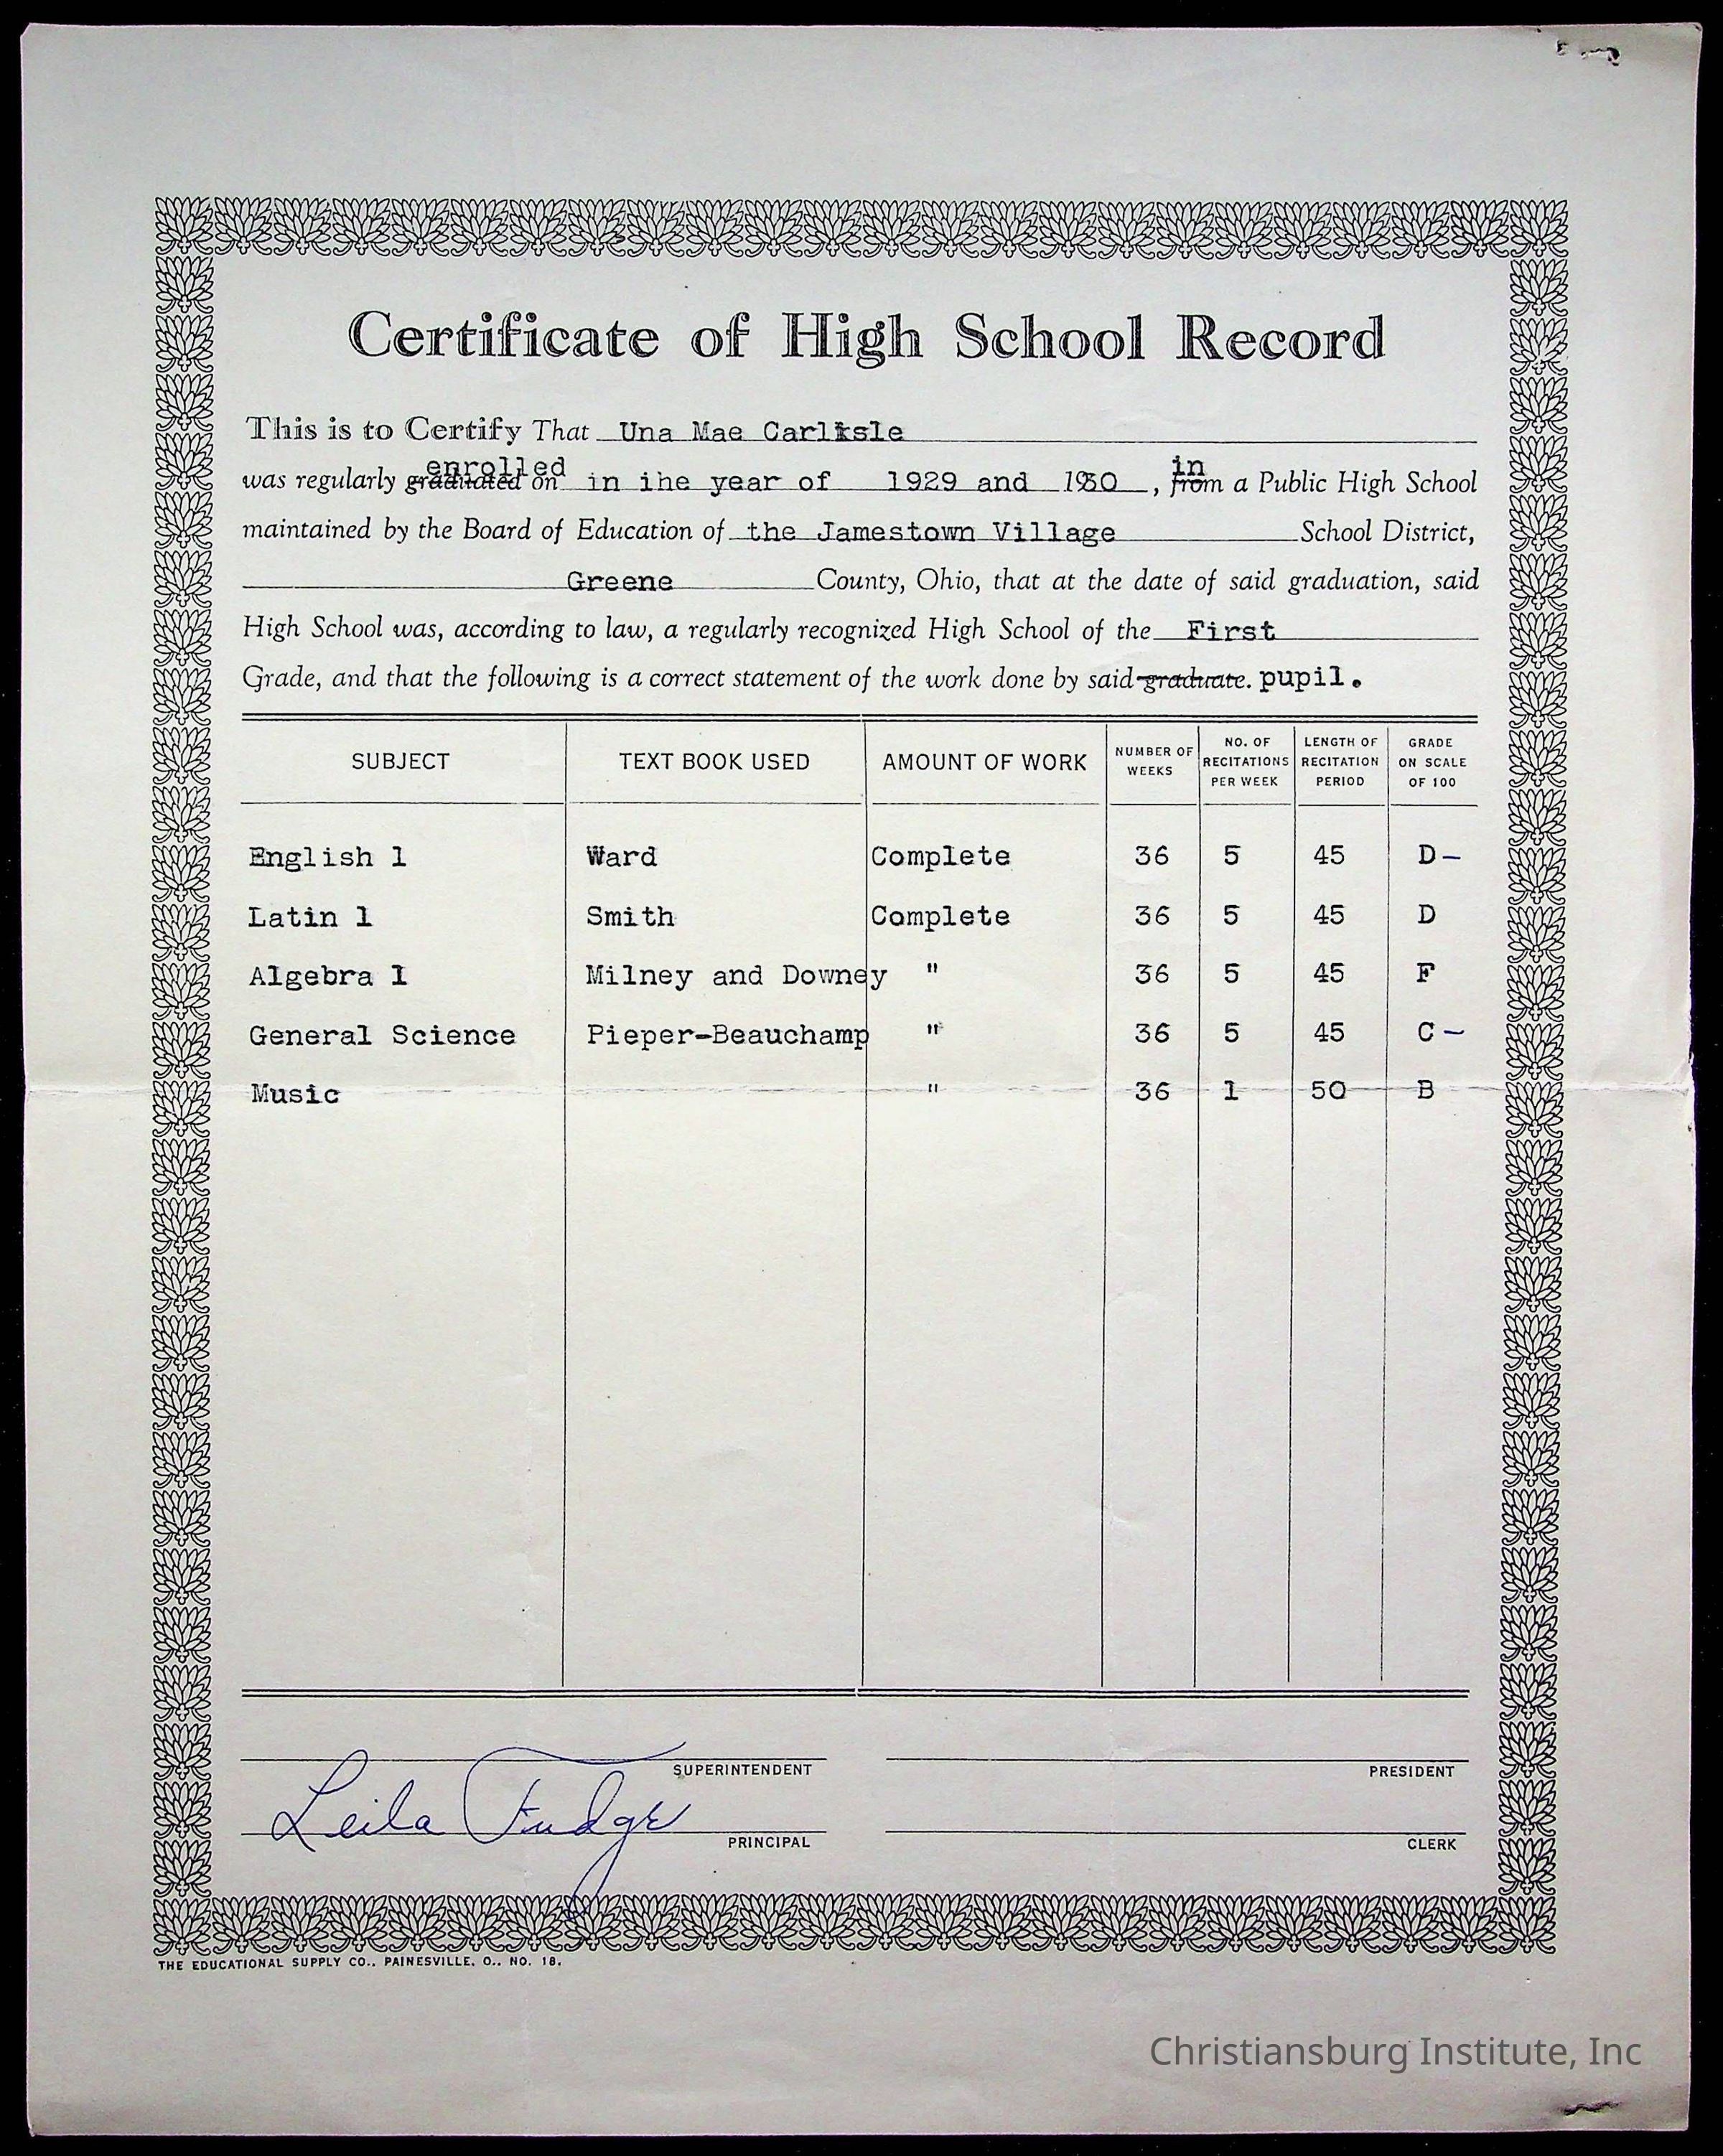 Certificate of High School Record
This is to Certify That Una Mae Carlisle
enrolled in
was regularly graduated on in the year of 1929 and 1930, from a Public High School
maintained by the Board of Education of the Jamestown Village School District,
Greene County, Ohio, that at the date of said graduation, said
High School was, according to law, a regularly recognized High School of the First
Grade, and that the following is a correct statement of the work done by said graduate. pupil.
SUBJECT TEXT BOOK USED AMOUNT OF WORK NUMBER OF WEEKS NO. OF RECITATIONS PER WEEK LENGTH OF RECITATION PERIOD GRADE ON SCALE OF 100
English 1 Ward Complete 36 5 45 D-
Latin 1 Smith Complete 36 5 45 D
Algebra 1 Milney and Downey " 36 5 45 F
General Science Pieper-Beauchamp " 36 5 45 C-
Music " 36 1 50 B
SUPERINTENDENT PRESIDENT
Leila Fudge
PRINCIPAL CLERK
THE EDUCATIONAL SUPPLY CO., PAINESVILLE, O., NO. 18.
Christiansburg Institute, Inc